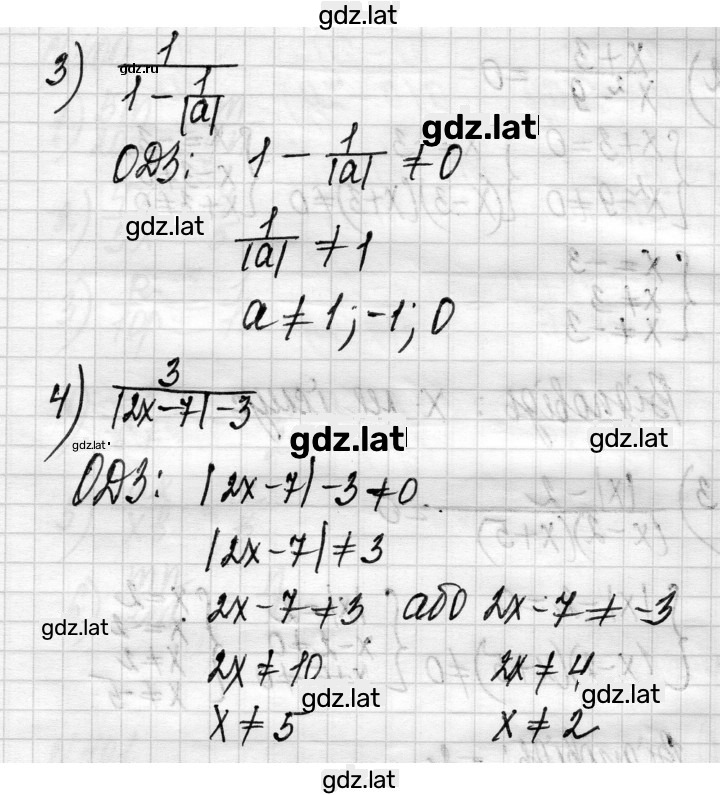 gdz.lat
3) 1
gdz.ru
1 - 1
|a|
gdz.lat
ОДЗ: 1 - 1/|a| ≠ 0
gdz.lat
1/|a| ≠ 1
a ≠ 1; -1; 0
4) 3
|2x-7| - 3
gdz.lat
gdz.lat
gdz.lat
ОДЗ: |2x-7| - 3 ≠ 0
|2x-7| ≠ 3
2x-7 ≠ 3 або 2x-7 ≠ -3
gdz.lat
2x ≠ 10 2x ≠ 4
gdz.lat gdz.lat
x ≠ 5 x ≠ 2
gdz.lat